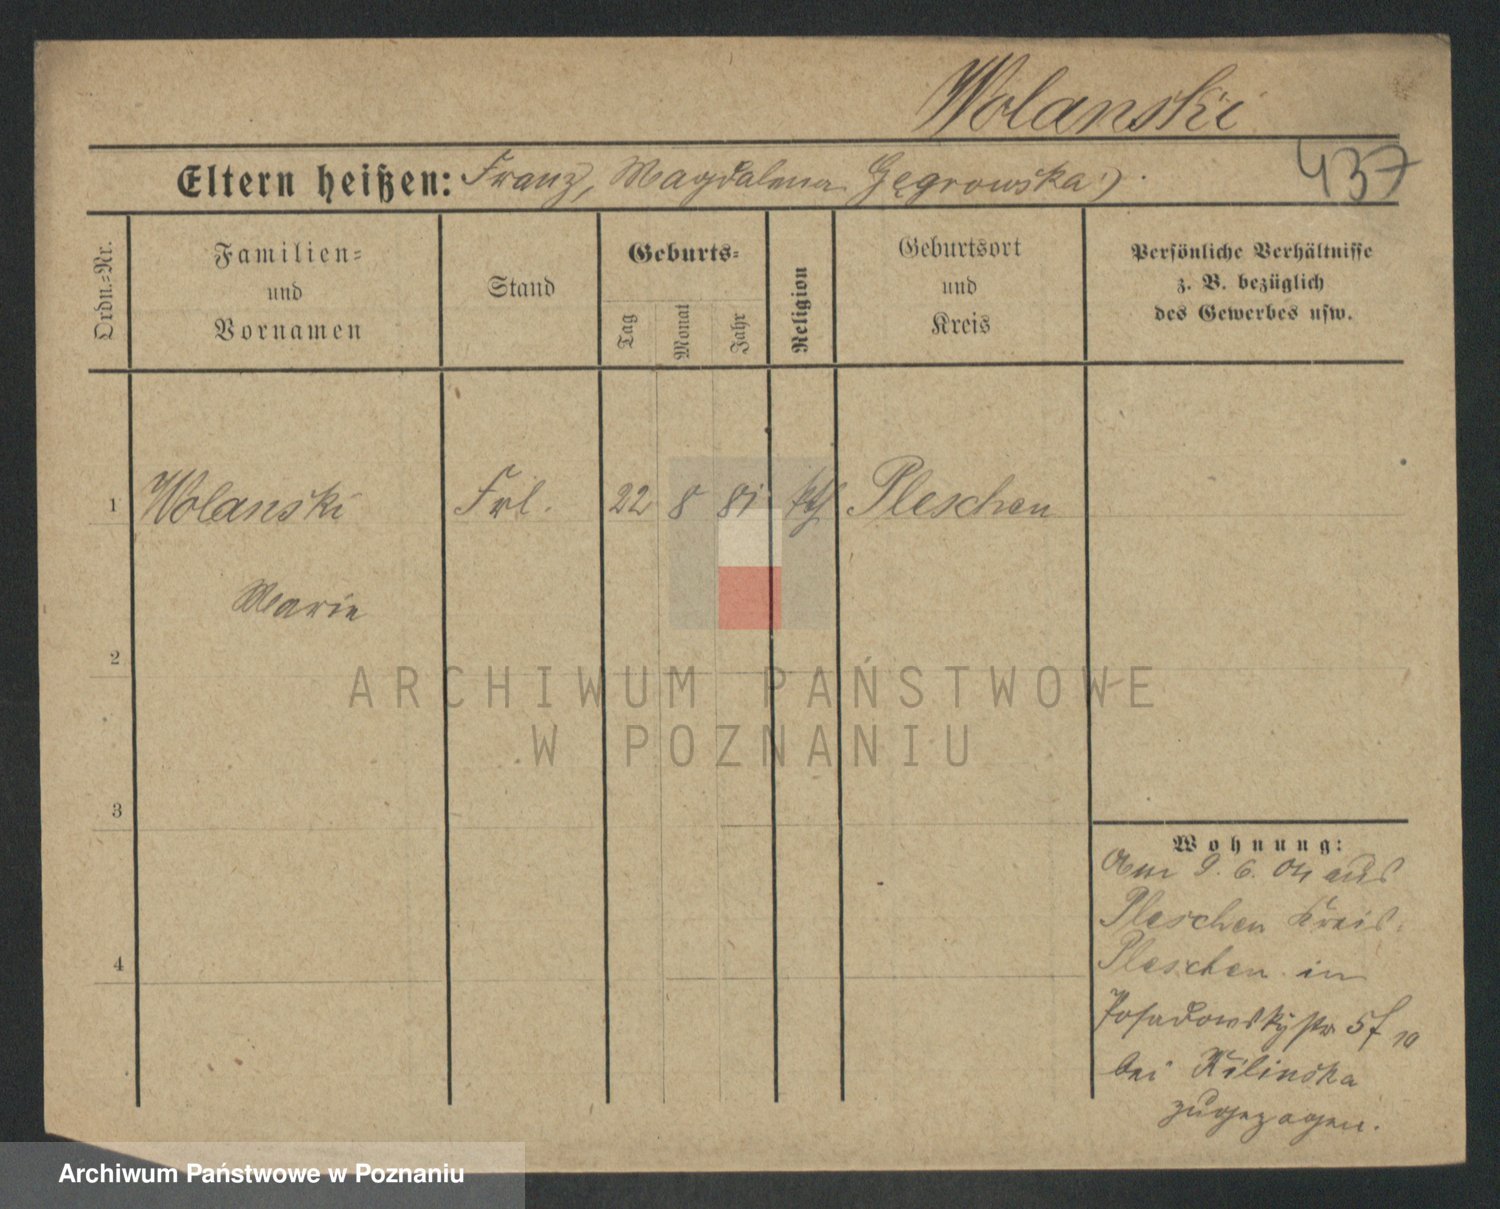 Wolanski
437
Eltern heißen: Franz, Magdalena Gęgrowska.
Ordn.=Nr.
Familien=
und
Vornamen
Stand
Geburts=
Tag
Monat
Jahr
Religion
Geburtsort
und
Kreis
Persönliche Verhältnisse
z. B. bezüglich
des Gewerbes usw.
1 Wolanski Frl. 22 8 81 kth Pleschen
Marie
2
3
4
Wohnung:
Am 9. 6. 04 aus
Pleschen Kreis
Pleschen in
Posadowskystr 5
bei Kilinska
zugezogen.
ARCHIWUM PAŃSTWOWE
W POZNANIU
Archiwum Państwowe w Poznaniu